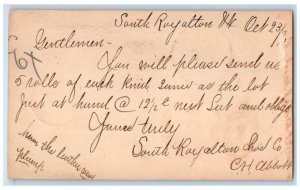 South Royalton Vt. Oct 23/
Gentlemen-
You will please send us
5 rolls of each Knit same as the lot
just at hand @ 12½c next Sat and oblige
Yours truly
South Royalton Shoe Co
C H Abbott
from the leather